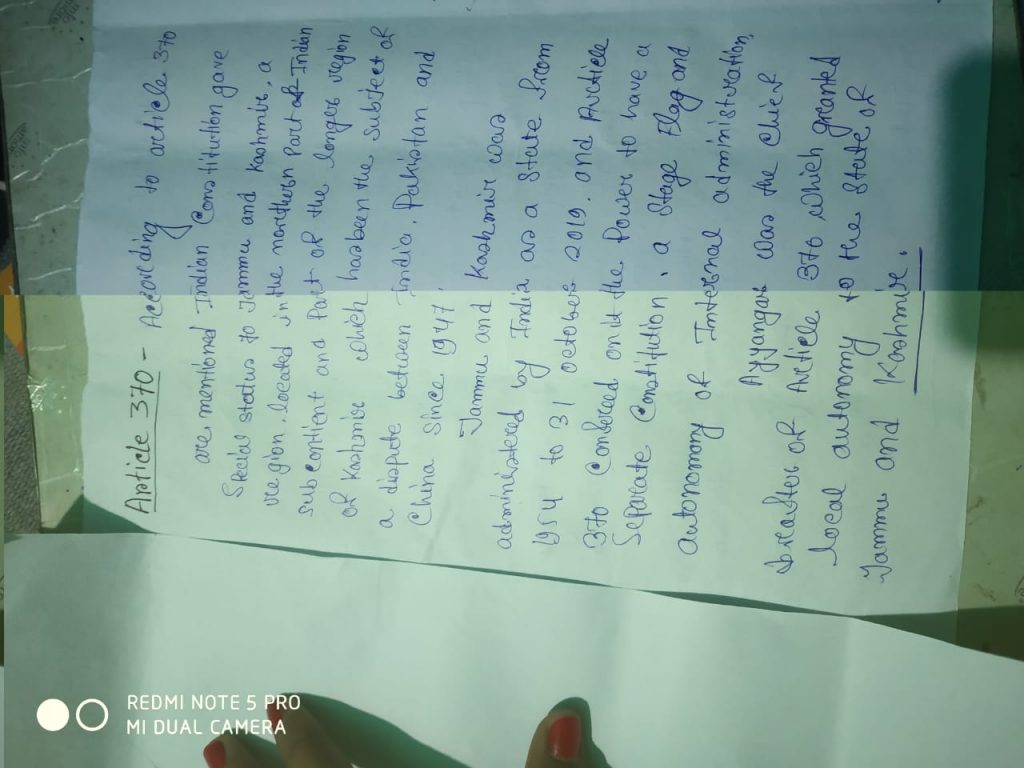 Article 370 - According to article 370
are mentioned Indian Constitution gave
Special status to Jammu and Kashmir, a
region located in the northern Part of Indian
subcontient and Part of the longer region
of Kashmir which has been the subject of
a dispute between India, Pakistan and
China since 1947.
Jammu and Kashmir was
administered by India as a State from
1954 to 31 octower 2019. and Article
370 Conferred on it the Power to have a
Separate Constitution, a Stage Flag and
autonomy of Internal administration.
Ayyangar was the chief
drafter of Article 370 which granted
local autonomy to the state of
Jammu and Kashmir.
REDMI NOTE 5 PRO
MI DUAL CAMERA